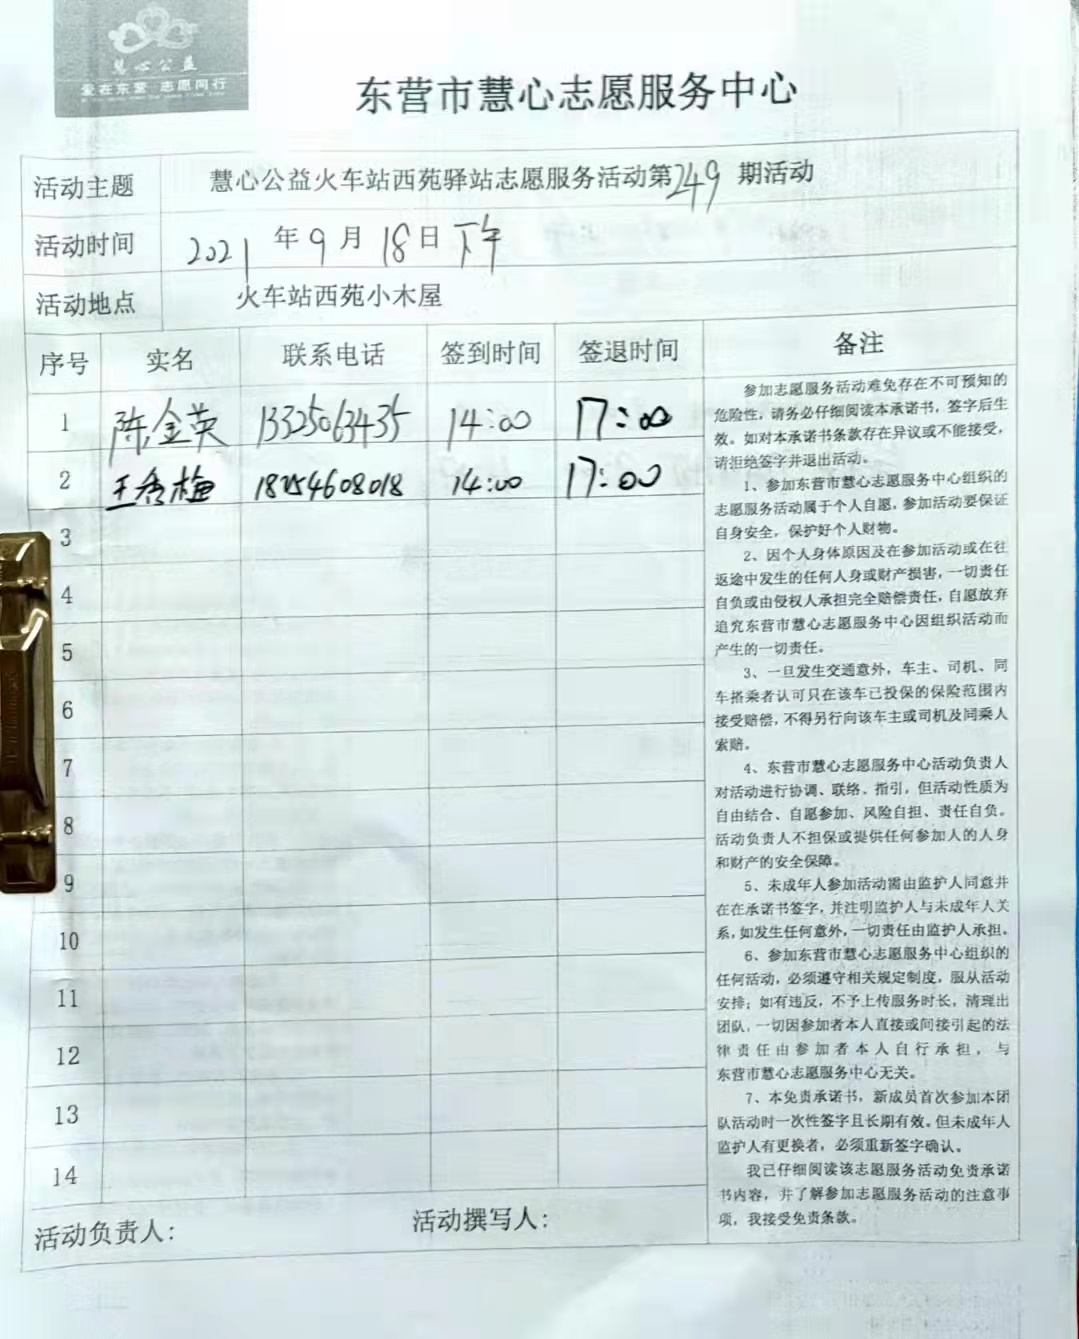 慧心公益
爱在东营 志愿同行
东营市慧心志愿服务中心
活动主题 慧心公益火车站西苑驿站志愿服务活动第249期活动
活动时间 2021年9月18日下午
活动地点 火车站西苑小木屋
序号 实名 联系电话 签到时间 签退时间 备注
1 陈金英 13325063435 14:00 17:00
2 王秀梅 18254608018 14:00 17:00
3
4
5
6
7
8
9
10
11
12
13
14
参加志愿服务活动难免存在不可预知的
危险性,请务必仔细阅读本承诺书,签字后生
效。如对本承诺书条款存在异议或不能接受,
请拒绝签字并退出活动。
1、参加东营市慧心志愿服务中心组织的
志愿服务活动属于个人自愿。参加活动要保证
自身安全,保护好个人财物。
2、因个人身体原因及在参加活动或在往
返途中发生的任何人身或财产损害,一切责任
自负或由侵权人承担完全赔偿责任,自愿放弃
追究东营市慧心志愿服务中心因组织活动而
产生的一切责任。
3、一旦发生交通意外,车主、司机、同
车搭乘者认可只在该车已投保的保险范围内
接受赔偿,不得另行向该车主或司机及同乘人
索赔。
4、东营市慧心志愿服务中心活动负责人
对活动进行协调、联络、指引,但活动性质为
自由结合、自愿参加、风险自担、责任自负。
活动负责人不担保或提供任何参加人的人身
和财产的安全保障。
5、未成年人参加活动需由监护人同意并
在在承诺书签字,并注明监护人与未成年人关
系,如发生任何意外,一切责任由监护人承担。
6、参加东营市慧心志愿服务中心组织的
任何活动,必须遵守相关规定制度,服从活动
安排;如有违反,不予上传服务时长,清理出
团队,一切因参加者本人直接或间接引起的法
律责任由参加者本人自行承担,与
东营市慧心志愿服务中心无关。
7、本免责承诺书,新成员首次参加本团
队活动时一次性签字且长期有效。但未成年人
监护人有更换者,必须重新签字确认。
我已仔细阅读该志愿服务活动免责承诺
书内容,并了解参加志愿服务活动的注意事
项,我接受免责条款。
活动负责人: 活动撰写人: